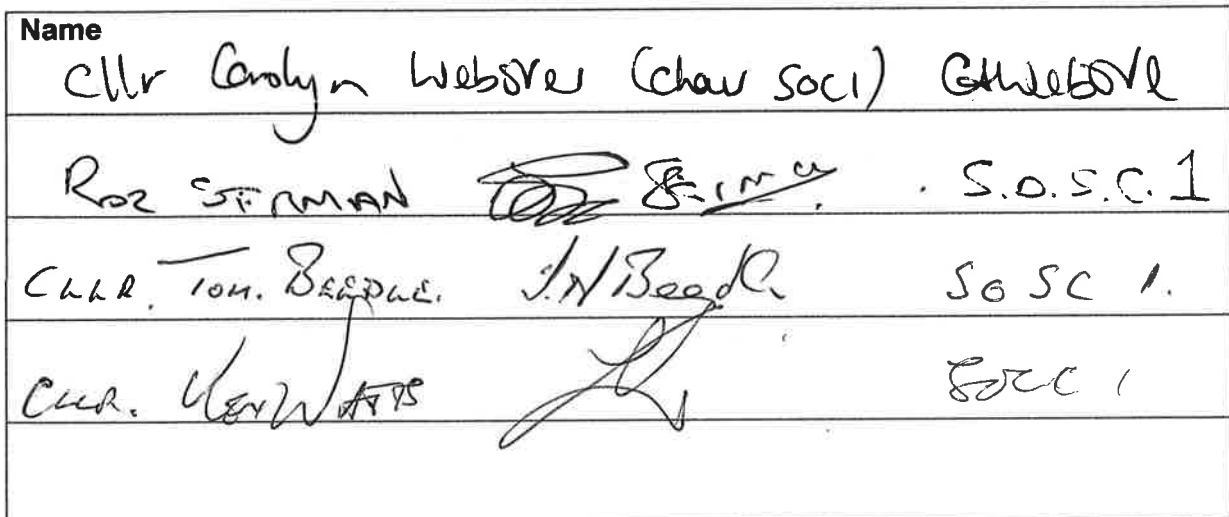 Name
Cllr Carolyn Webster (chair SOC1) CAWebster
Roz SERMAN S.O.S.C. 1
CLLR. TOM. BEEDLE. J.N Beedle SOSC 1.
CLLR. KEN WATTS SOSC 1